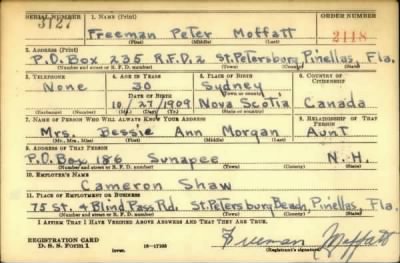 SERIAL NUMBER 1. NAME (Print) ORDER NUMBER
3127 Freeman Peter Moffatt 2118
(First) (Middle) (Last)
2. ADDRESS (Print)
P.O. Box 235 R.F.D. 2 St. Petersburg, Pinellas, Fla.
(Number and street or R. F. D. number) (Town) (County) (State)
3. TELEPHONE 4. AGE IN YEARS 5. PLACE OF BIRTH 6. COUNTRY OF CITIZENSHIP
None 30 Sydney
DATE OF BIRTH (Town or county)
10/27/1909 Nova Scotia Canada
(Exchange) (Number) (Mo.) (Day) (Yr.) (State or country)
7. NAME OF PERSON WHO WILL ALWAYS KNOW YOUR ADDRESS 8. RELATIONSHIP OF THAT PERSON
Mrs. Bessie Ann Morgan Aunt
(Mr., Mrs., Miss) (First) (Middle) (Last)
9. ADDRESS OF THAT PERSON
P.O. Box 186 Sunapee N.H.
(Number and street or R. F. D. number) (Town) (County) (State)
10. EMPLOYER'S NAME
Cameron Shaw
11. PLACE OF EMPLOYMENT OR BUSINESS
75 st. & Blind Pass Rd. St. Petersburg Beach, Pinellas, Fla.
(Number and street or R. F. D. number) (Town) (County) (State)
I AFFIRM THAT I HAVE VERIFIED ABOVE ANSWERS AND THAT THEY ARE TRUE.
REGISTRATION CARD
D. S. S. Form 1 (over) 16—17105 Freeman Moffatt
(Registrant's signature)